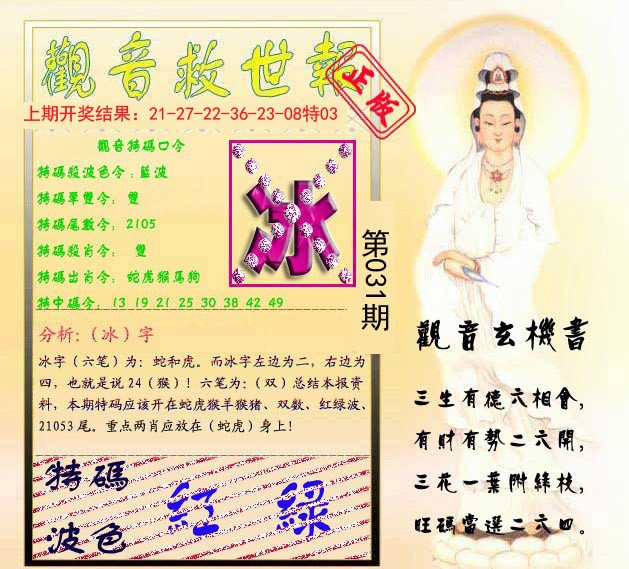 觀音救世報
正版
上期开奖结果：21-27-22-36-23-08特03
觀音特碼口令
特碼殺波色令：藍波
特碼單雙令： 雙
特碼尾數令： 2105
特碼殺肖令： 雙
特碼出肖令： 蛇虎猴馬狗
特中碼令： 13 19 21 25 30 38 42 49
冰
第031期
分析:（冰）字
冰字（六笔）为：蛇和虎。而冰字左边为二，右边为
四，也就是说 24（猴）！六笔为:（双）总结本报资
料，本期特码应该开在蛇虎猴羊猴猪、双数、红绿波、
21053 尾。重点两肖应放在（蛇虎）身上!
特碼
波色
紅 綠
觀音玄機書
三生有德六相會,
有財有勢二六開,
三花一葉附綠枝,
旺碼當選二六四。